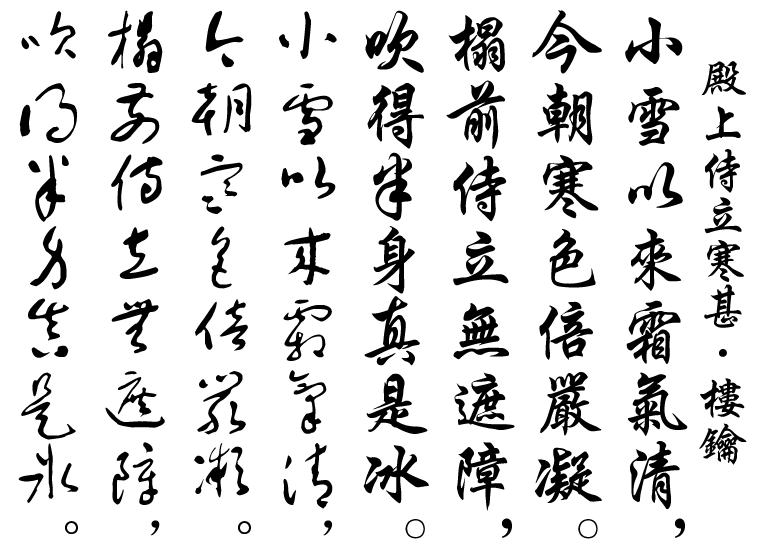 殿上侍立寒甚・樓鑰
小雪以來霜氣清，
今朝寒色倍嚴凝。
榻前侍立無遮障，
吹得半身真是冰。
小雪以來霜氣清，
今朝寒色倍嚴凝。
榻前侍立無遮障，
吹得半身真是冰。